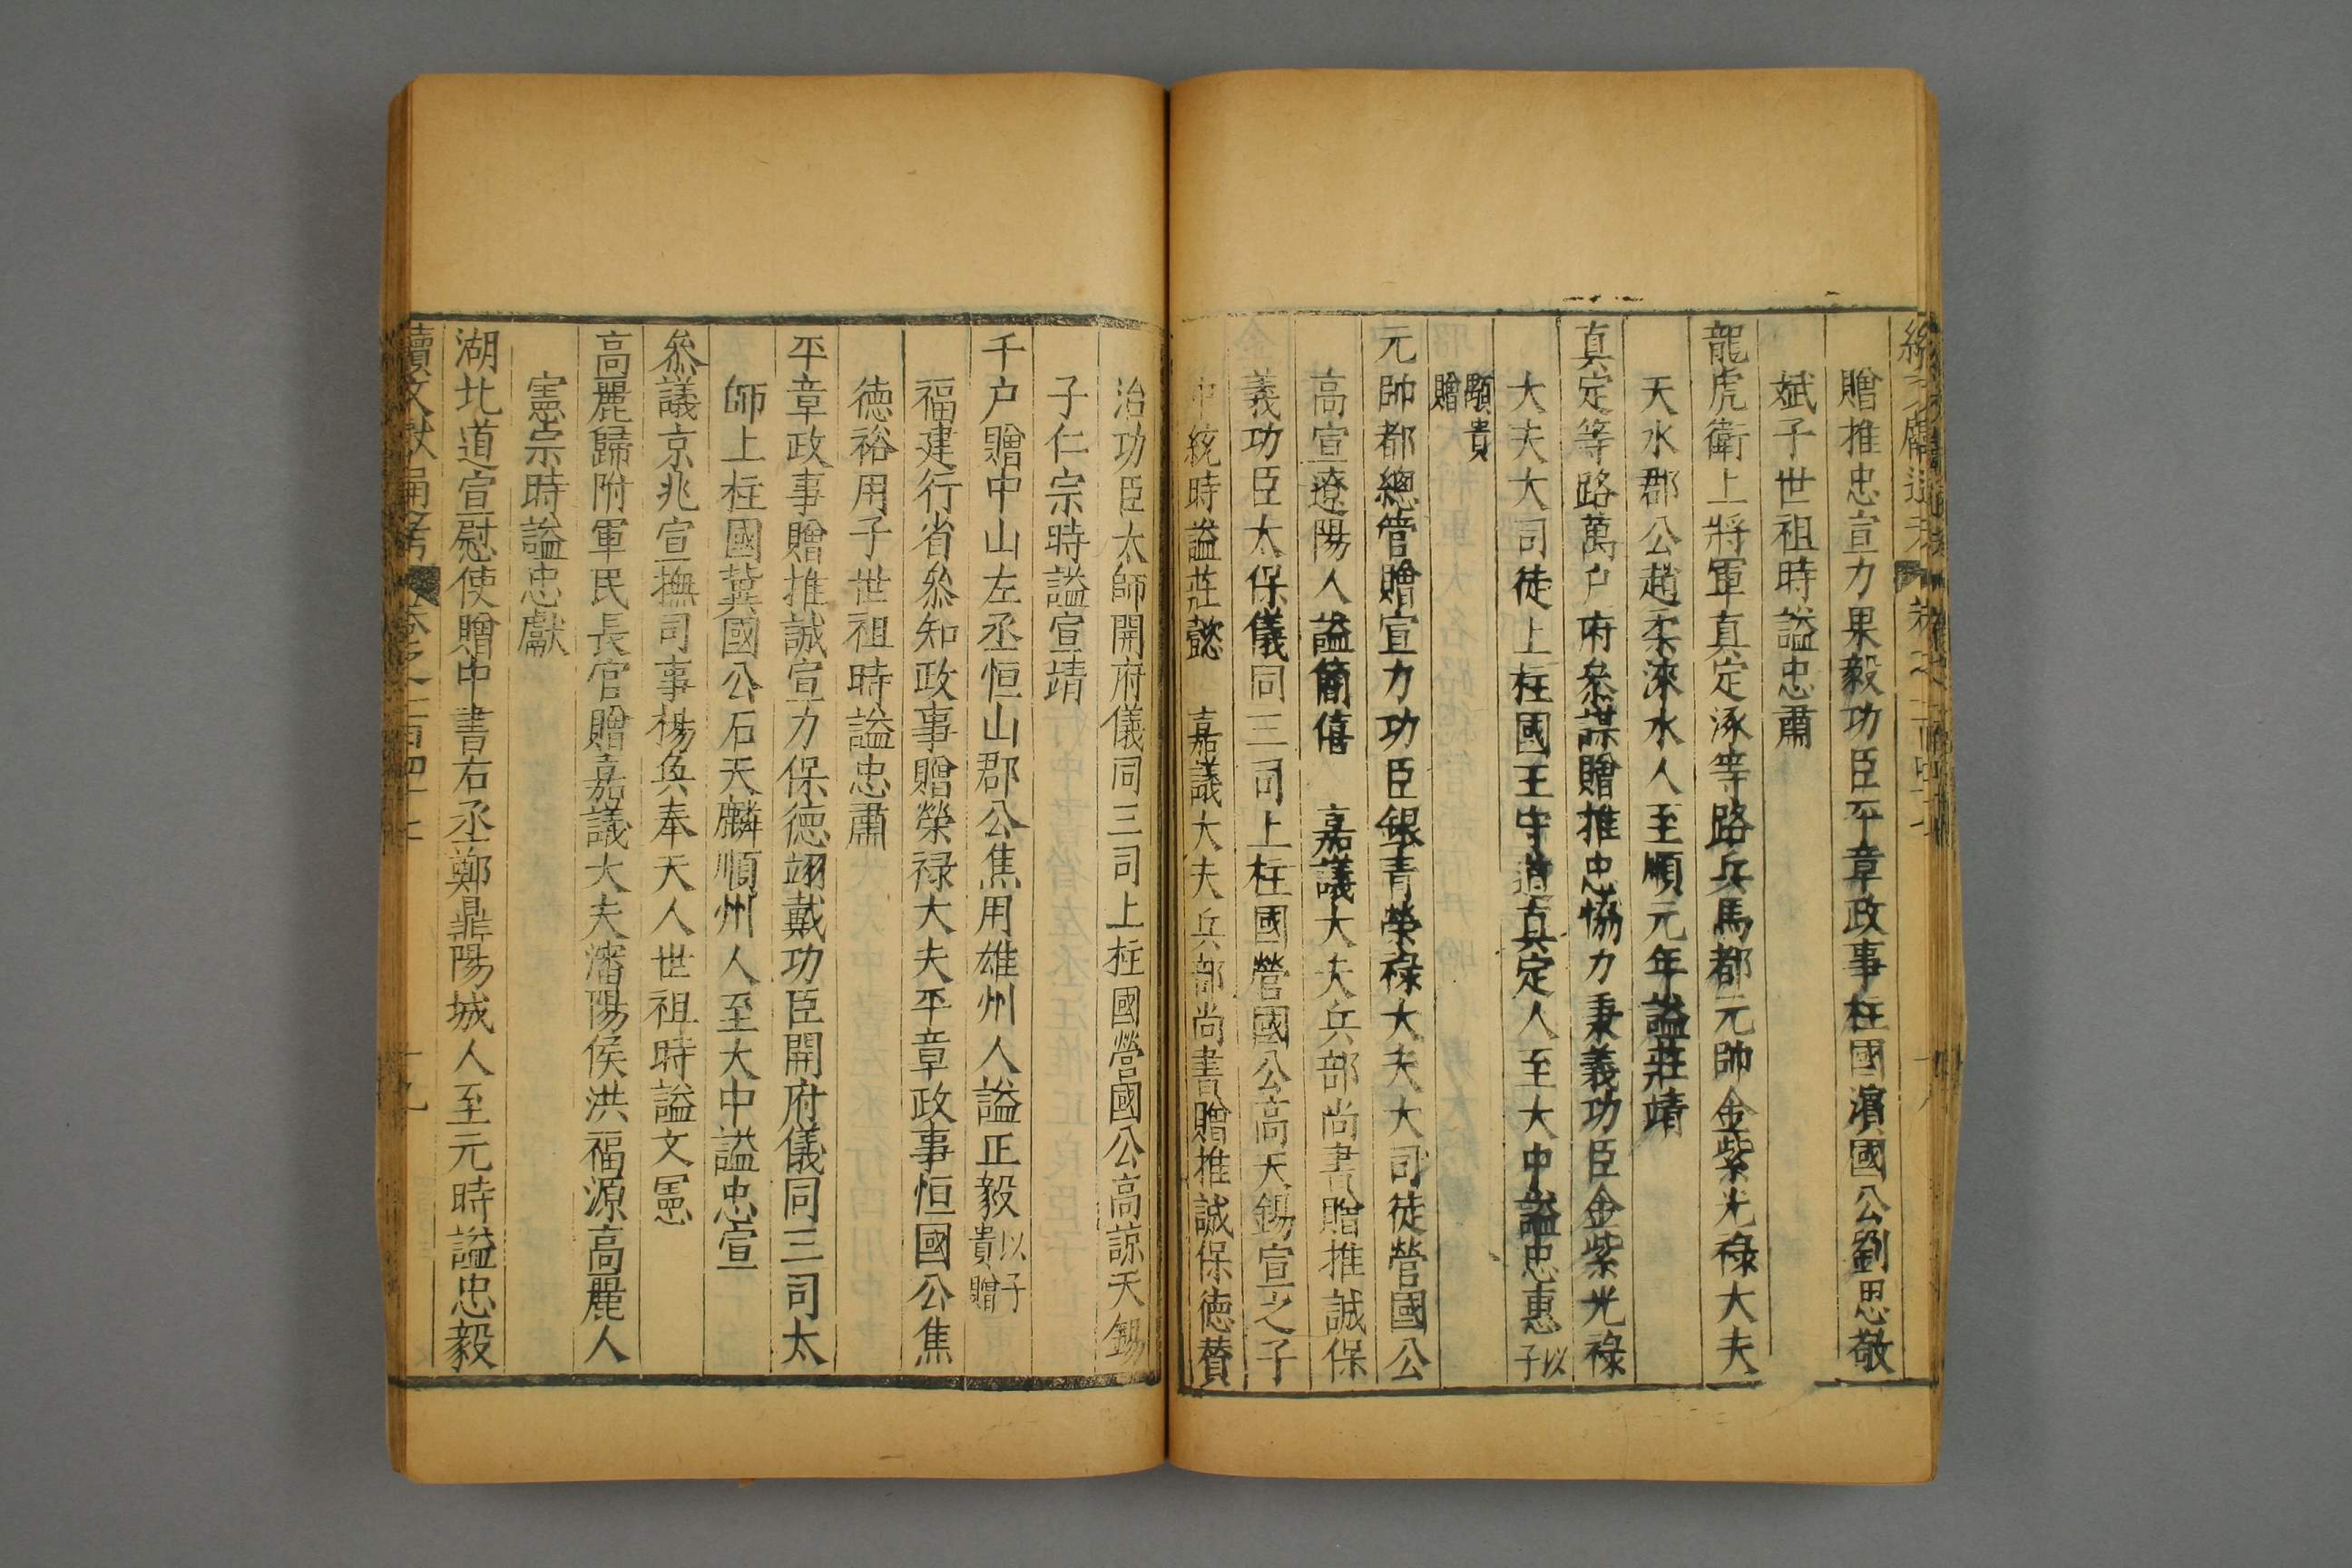 贈推忠宣力果毅功臣平章政事柱國濱國公劉思敬
斌子世祖時謚忠肅
龍虎衛上將軍真定涿等路兵馬都元帥金紫光祿大夫
天水郡公趙柔淶水人至順元年謚莊靖
真定等路萬戶府叅謀贈推忠恊力秉義功臣金紫光祿
大夫大司徒上柱國王守道真定人至大中謚忠惠以子
顒貴贈
元帥都總管贈宣力功臣銀青榮祿大夫大司徒營國公
高宣遼陽人謚簡僖 嘉議大夫兵部尚書贈推誠保
義功臣太保儀同三司上柱國營國公高天錫宣之子
中統時謚莊懿 嘉議大夫兵部尚書贈推誠保德贊
治功臣太師開府儀同三司上柱國營國公高諒天錫
子仁宗時謚宣靖
千户贈中山左丞恒山郡公焦用雄州人謚正毅以子貴贈
福建行省叅知政事贈榮祿大夫平章政事恒國公焦
德裕用子世祖時謚忠肅
平章政事贈推誠宣力保德翊戴功臣開府儀同三司太
師上柱國冀國公石天麟順州人至大中謚忠宣
叅議京兆宣撫司事楊奐奉天人世祖時謚文憲
高麗歸附軍民長官贈嘉議大夫瀋陽侯洪福源高麗人
憲宗時謚忠獻
湖北道宣慰使贈中書右丞鄭鼎陽城人至元時謚忠毅
續文獻通考 卷之一百四十七 十九